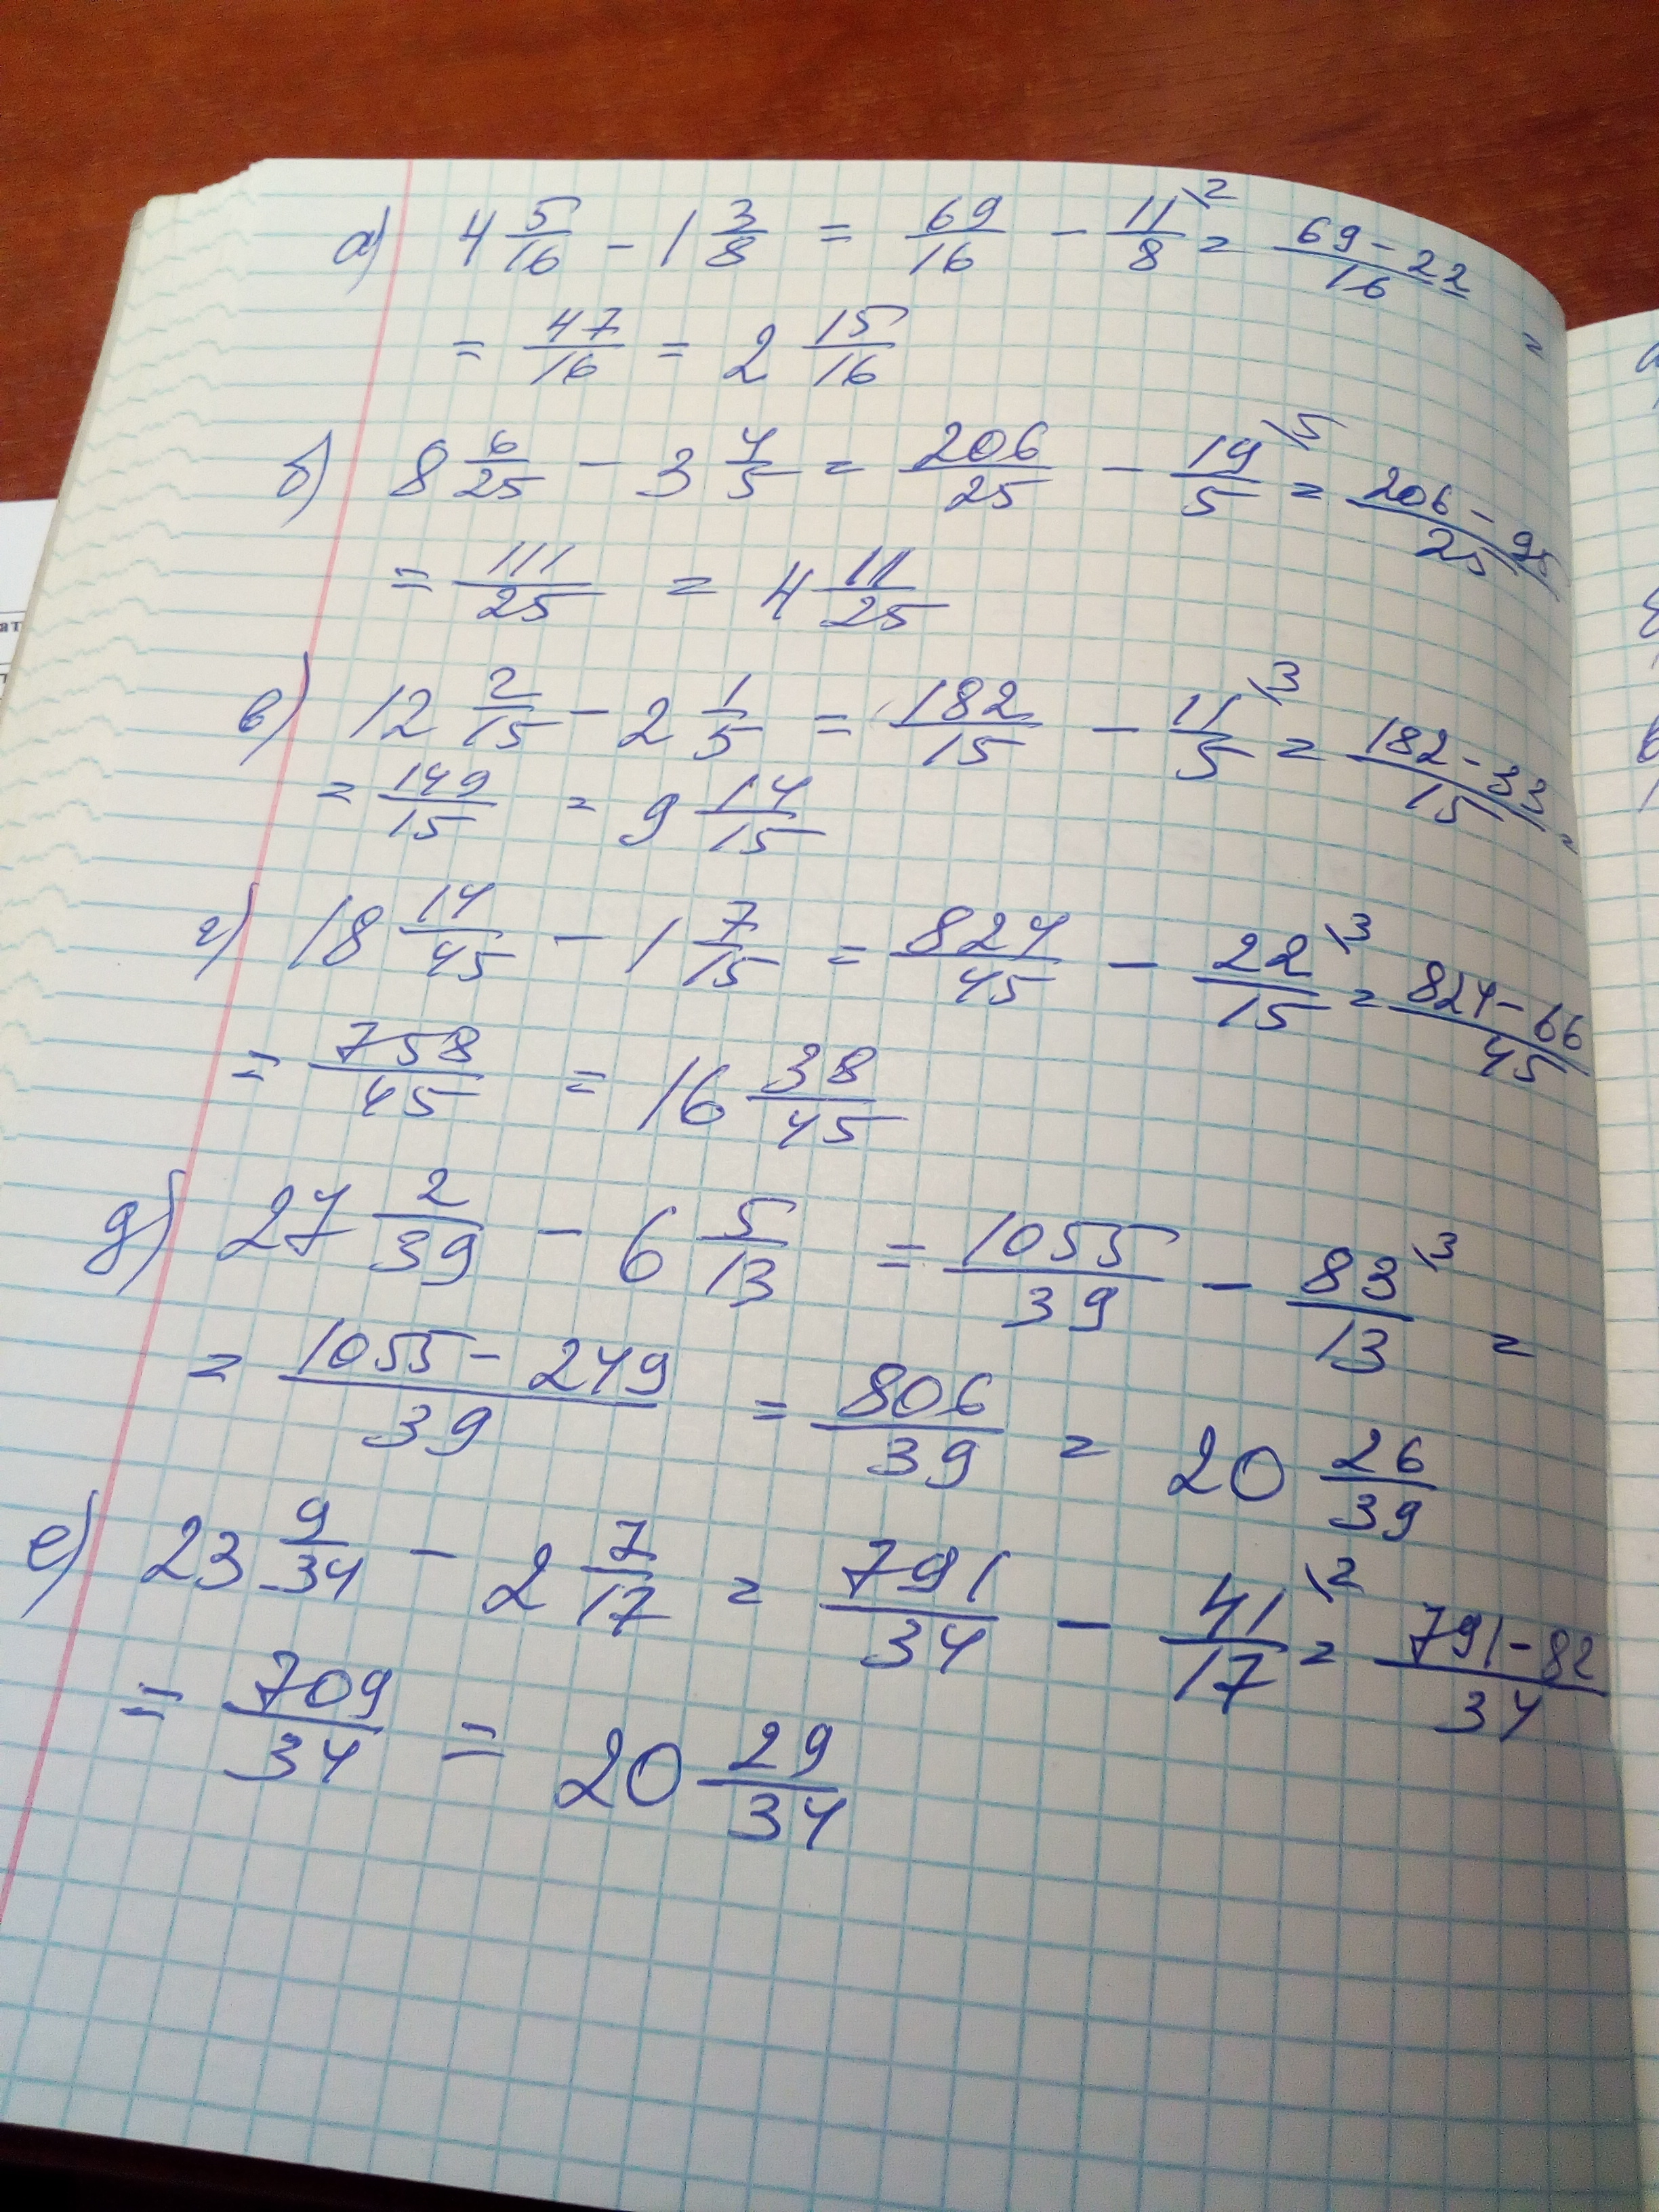 а) 4 5/16 - 1 3/8 = 69/16 - 11/8 \2 = 69-22/16 =
= 47/16 = 2 15/16
б) 8 6/25 - 3 4/5 = 206/25 - 19/5 \5 = 206-95/25
= 111/25 = 4 11/25
в) 12 2/15 - 2 1/5 = 182/15 - 11/5 \3 = 182-33/15 =
= 149/15 = 9 14/15
г) 18 14/45 - 1 7/15 = 824/45 - 22/15 \3 = 824-66/45
= 758/45 = 16 38/45
д) 27 2/39 - 6 5/13 = 1055/39 - 83/13 \3 =
= 1055-249/39 = 806/39 = 20 26/39
е) 23 9/34 - 2 7/17 = 791/34 - 41/17 \2 = 791-82/34
= 709/34 = 20 29/34